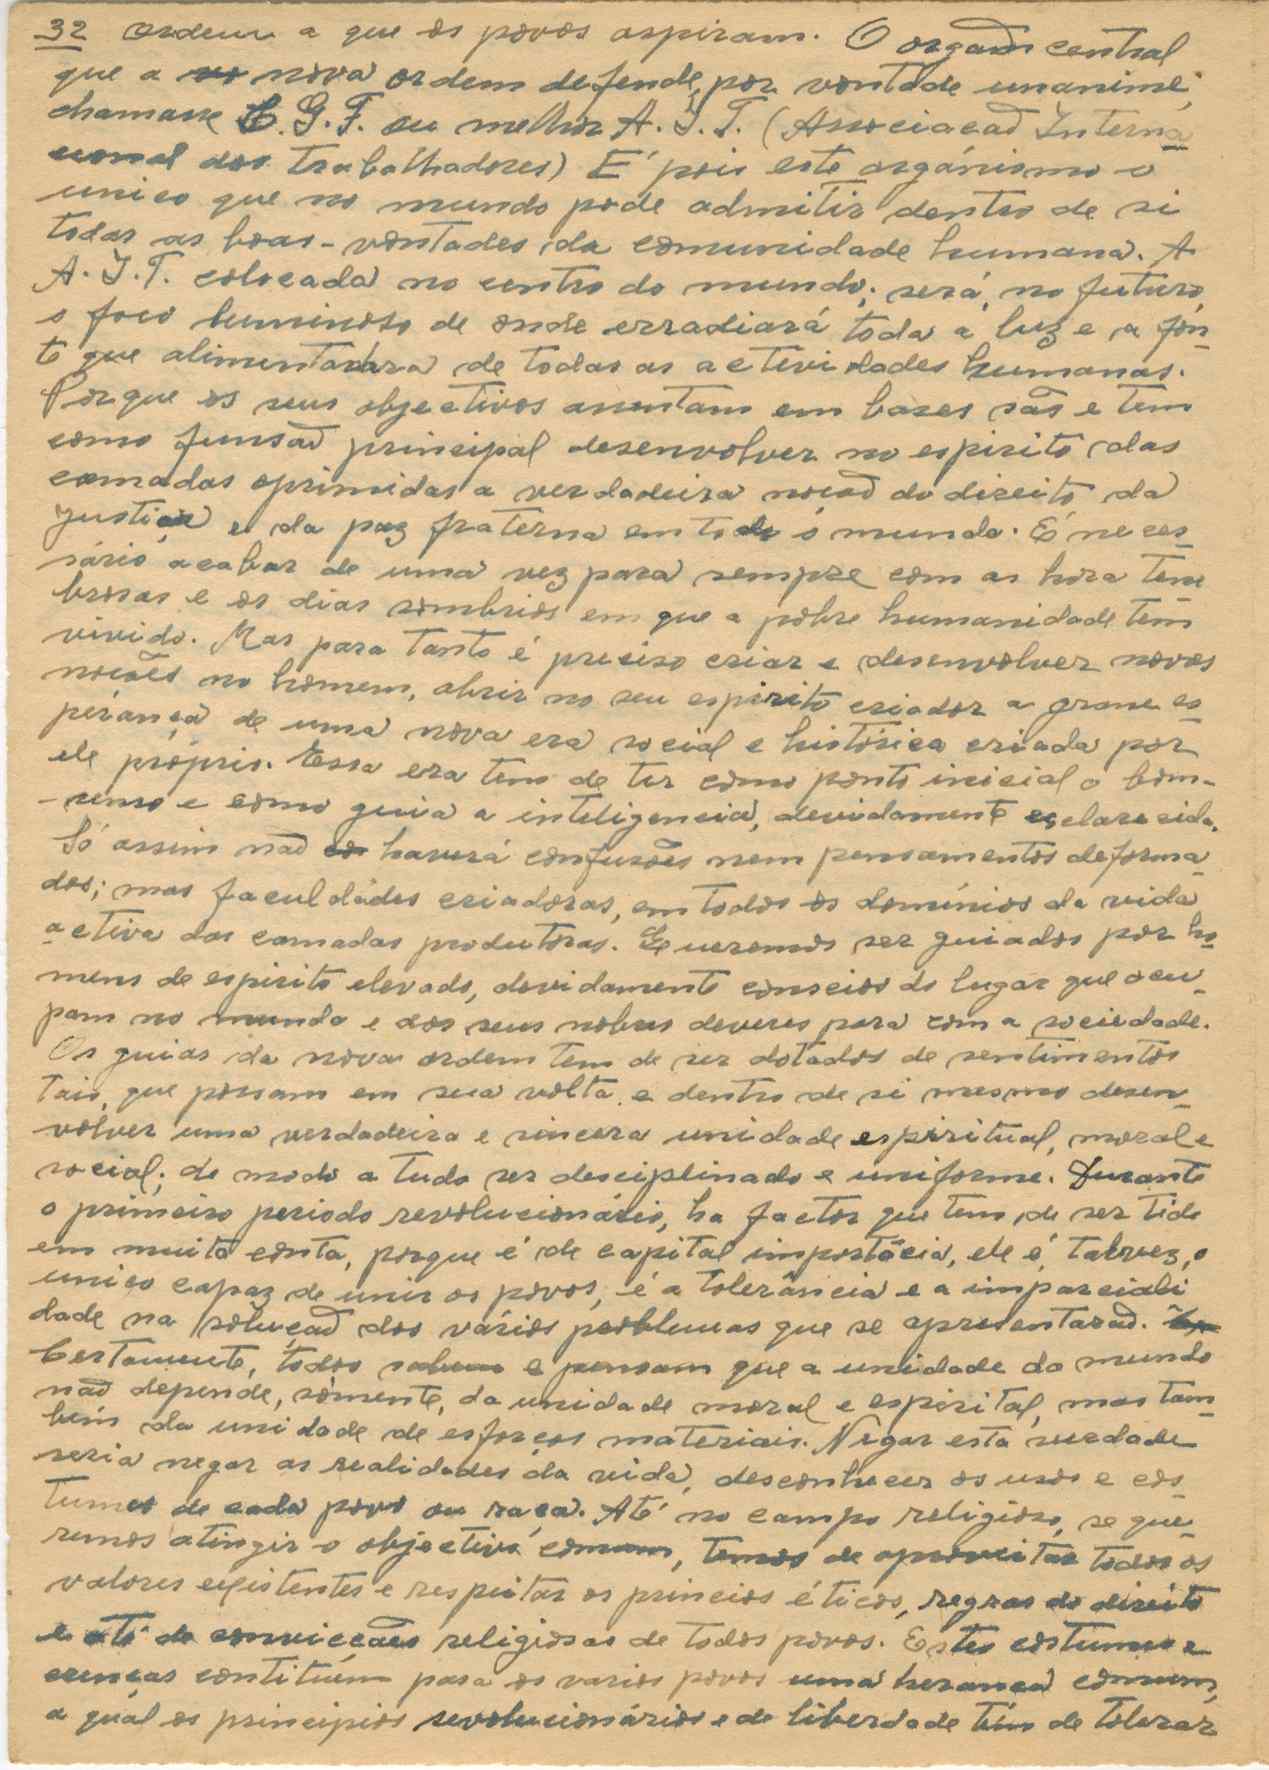 32 ordem a que os povos aspiram. O orgaõ central
que a nova ordem defende, por vontade unanime,
chamasse C. G. T. ou melhor A. I. T. (Associacaõ Interna
cional dos trabalhadores) E' pois este orgánismo o
unico que no mundo pode admitir dentro de si
todas as boas-vontades da comunidade humana. A
A. I. T. colocada no centro do mundo; será, no futuro,
o foco luminoso de onde erradiará toda a luz e a fon-
te que alimentadora de todas as actividades humanas.
Porque os seus objectivos assentam em bases sãs e tem
como funsaõ principal desenvolver no espirito das
camadas oprimidas a verdadeira nocaõ do direito da
justiça e da paz fraterna em todo o mundo. É neces-
sário acabar de uma vez para sempre com as hora tene
brosas e os dias sombrios em que a pobre humanidade tem
vivido. Mas para tanto é preciso criar e desenvolver novas
noções no homem, abrir no seu espirito criador a grane es-
perança de uma nova era social e histórica criada por
ele próprio. Essa era tem de ter como ponto inicial o bom-
-senso e como guia a inteligencia, devidamente esclarecida.
Só assim naõ haverá confusões nem pensamentos deforma-
dos; mas faculdades criadoras, em todos os domínios da vida
activa das camadas produtoras. Queremos ser guiados por ho-
mens de espirito elevado, devidamente conscios do lugar que ocu-
pam no mundo e dos seus nobres deveres para com a sociedade.
Os guias da nova ordem tem de ser dotados de sentimentos
tais, que possam em sua volta e dentro de si mesmo desen-
volver uma verdadeira e sincera unidade espiritual, moral e
social; de modo a tudo ser desciplinado e uniforme. Durante
o primeiro periodo revolucionário, ha factor que tem de ser tido
em muita conta, porque é de capital importácia, ele é, talvez, o
unico capaz de unir os povos, é a tolerância e a imparciali
dade na soluçaõ dos vários problemas que se apresentaraõ.
Certamente, todos sabem e pensam que a unidade do mundo
naõ depende, sòmente, da unidade moral e espirital, mas tam-
bém da unidade de esforços materiais. Negar esta verdade
seria negar as realidades da vida, desconhecer os usos e cos-
tumes de cada povo ou raça. Até no campo religioso, se que-
remos atingir o objectivo comum, temos de aproveitar todos os
valores existentes e respeitar os princios éticos, regras do direito
e até de convicções religiosas de todos povos. Estes costumes e
crenças contituém para os varios povos uma herança comum,
a qual os principios revolucionários e de liberdade têm de tolerar